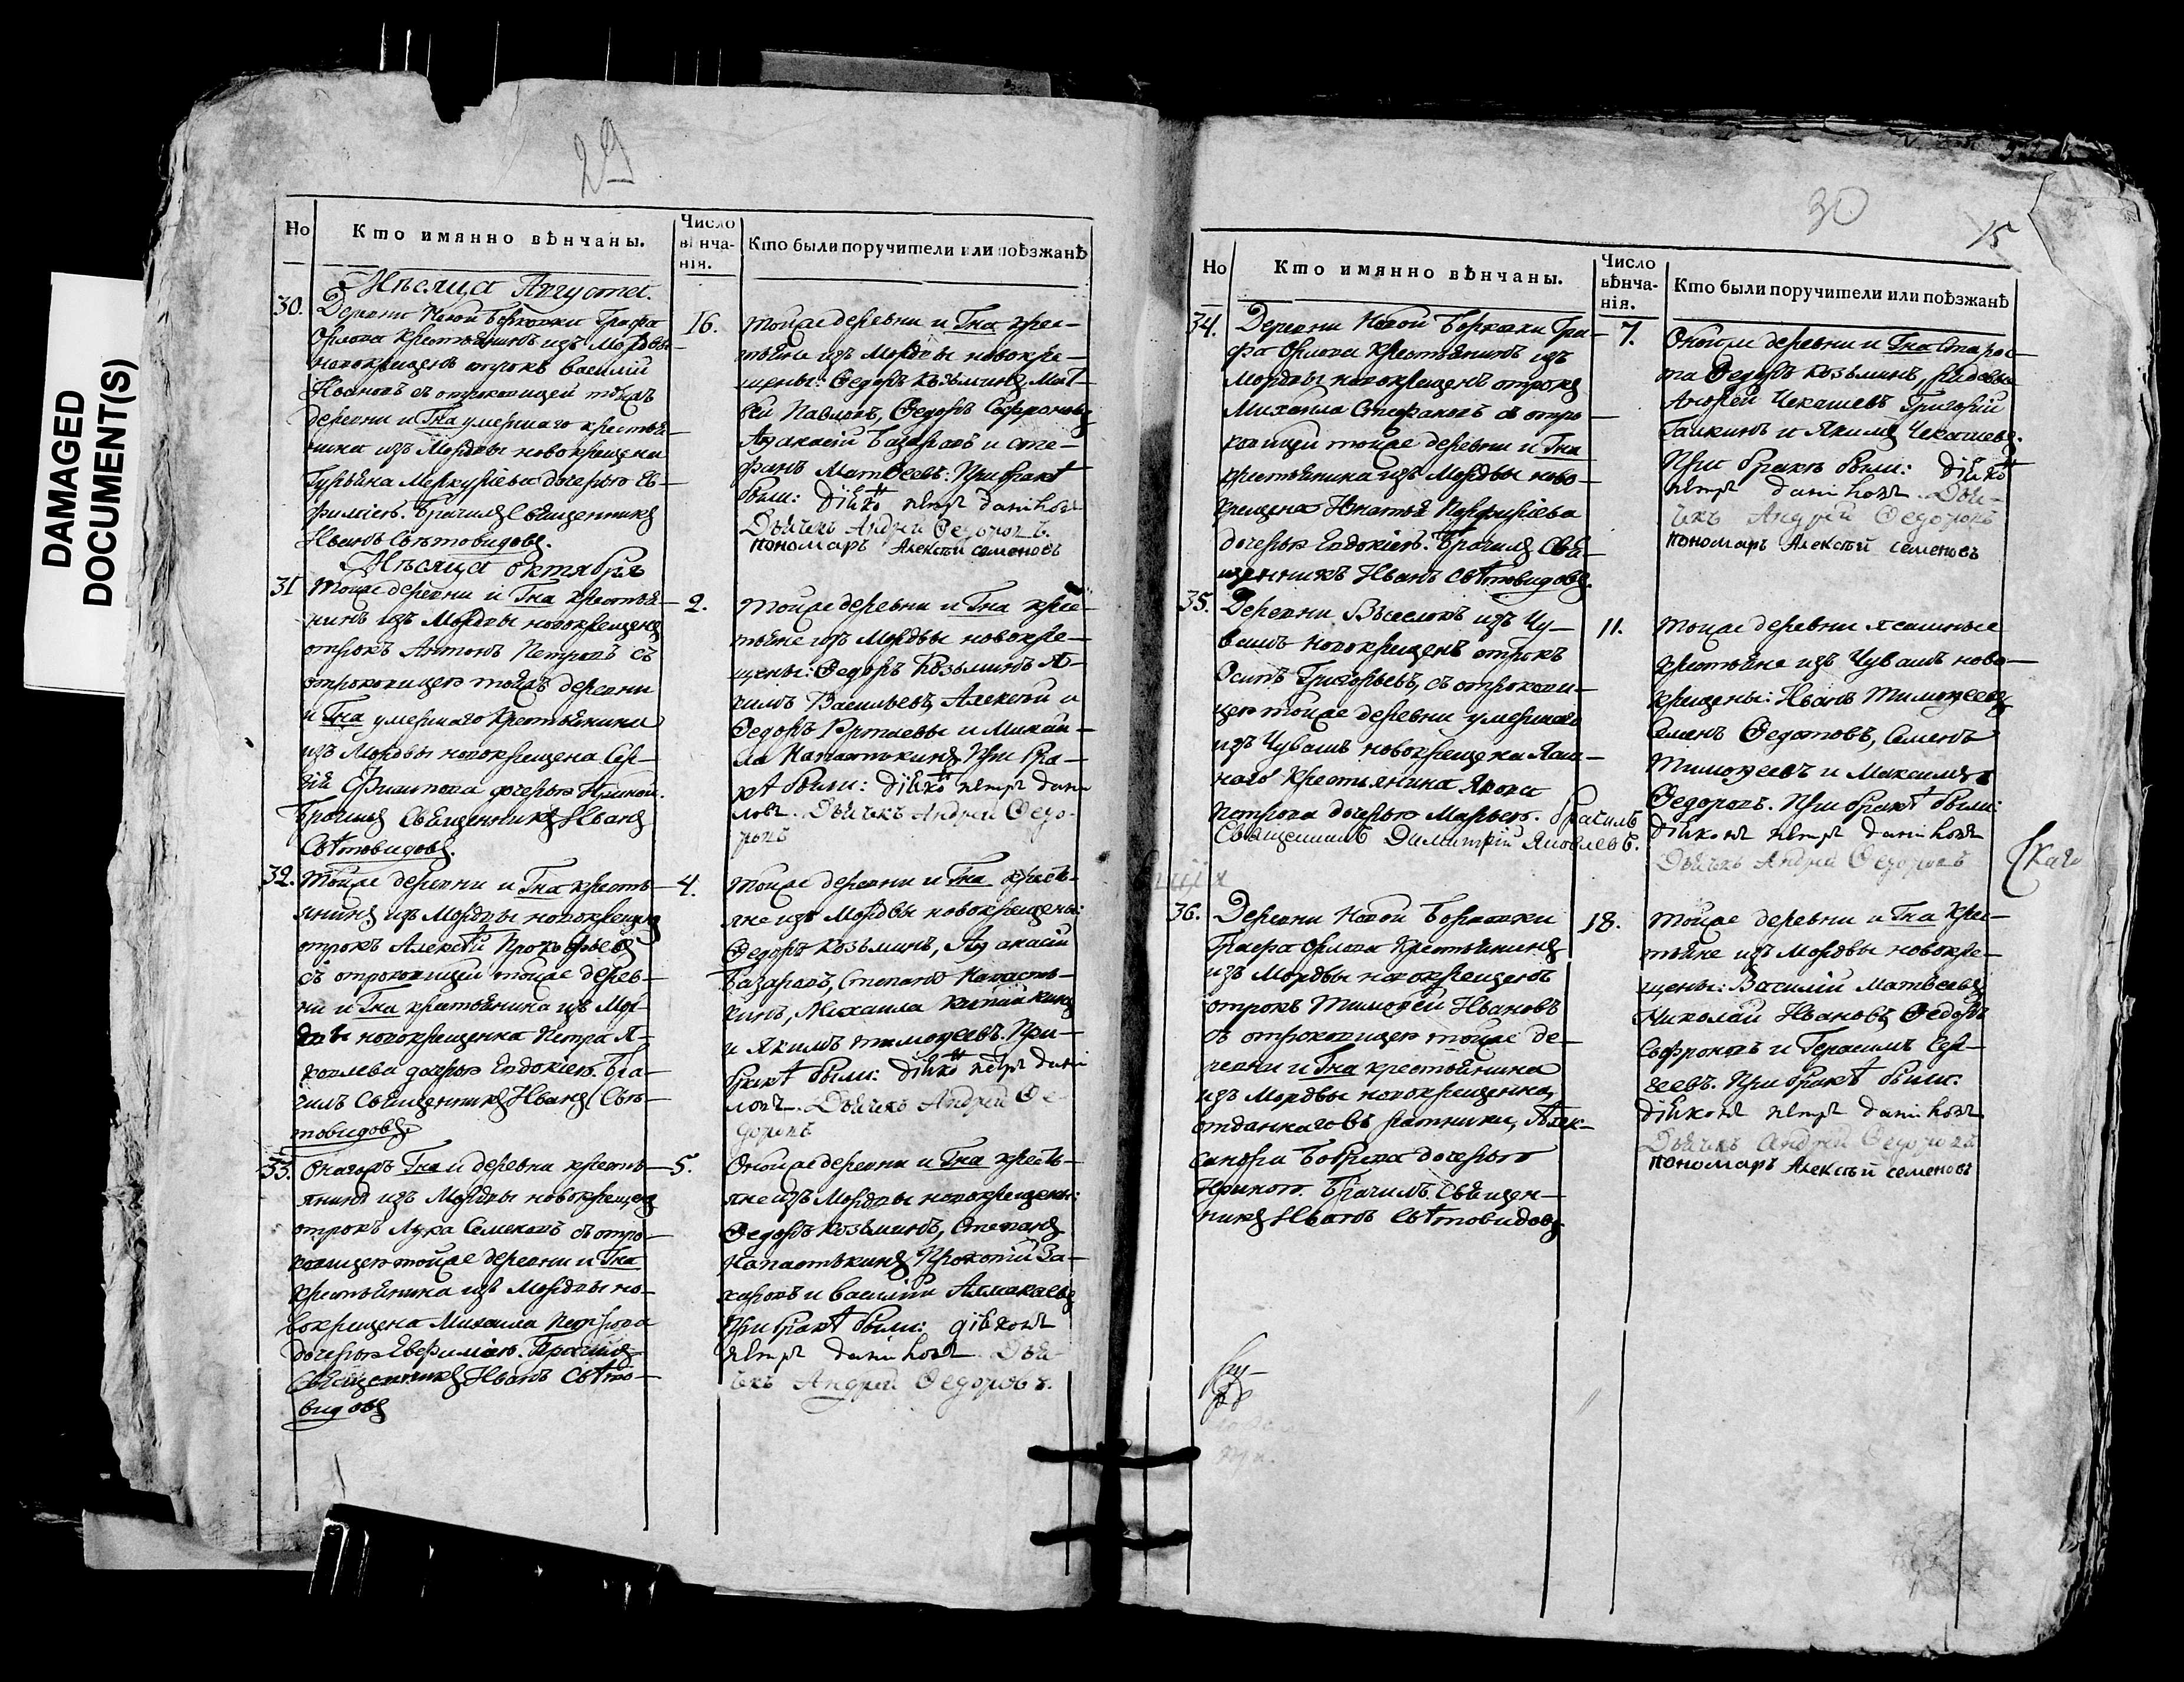 DAMAGED
DOCUMENT(S)
29
Но
Кто имянно вѣнчаны.
Число
вѣнча-
нія.
Кто были поручители или поѣзжанѣ
Мѣсяца Августа.
30.
Деревни Новой Борковки Графа
Орлова крестьянинъ изъ Мордвы
новокрещенъ отрокъ Василій
Ивановъ съ отроковицей тойжъ
деревни и Гна умершаго крестья-
нина изъ Мордвы новокрещена
Гурьяна Меркурьева дочерью Еѵ-
фиміею. Брачилъ Священникъ
Иванъ Свѣтовидовъ.
16.
тойже деревни и Гна крес-
тьяне изъ Мордвы новокре-
щены: Ѳедоръ Козьминъ, Мат-
вѣй Павловъ, Ѳедоръ Софроновъ,
Аѳанасій Базаровъ и сте-
фанъ Матвеевъ: При бракѣ
были: діако петръ даниловъ
Дьячекъ Андрей Ѳедоровъ.
пономарь Алексѣй семеновъ
Мѣсяца октября
31
Тойже деревни и Гна крестья-
нинъ изъ Мордвы новокрещенъ
отрокъ Антонъ Петровъ съ
отроковицею тойжъ деревни
и Гна умершаго крестьянина
изъ Мордвы новокрещена Сер-
гѣя Филипова дочерью
Брачилъ Священникъ Иванъ
Свѣтовидовъ.
2.
тойже деревни и Гна крес-
тьяне изъ Мордвы новокре-
щены: Ѳедоръ Козьминъ
Васильевъ, Алексѣй и
Ѳедоръ и Михай-
ла Напасткинъ При бра-
кѣ были: діако петръ дани
ловъ. Дьячекъ Андрей Ѳедо-
ровъ
32.
Тойже деревни и Гна кресть-
янинъ изъ Мордвы новокрещенъ
отрокъ Алексѣй Прокофьевъ
съ отроковицей тойже дерев-
ни и Гна крестьянина изъ Мор-
двы новокрещенка Петра Я-
ковлева дочерью Евдокіею. Бра-
чилъ Священникъ Иванъ Свѣ-
товидовъ.
4.
тойже деревни и Гна кресть-
яне изъ Мордвы новокрещены:
Ѳедоръ Козьминъ, Аѳанасій
Базаровъ, Степанъ Напасть-
кинъ, Михаила
и Якимъ тимоѳеевъ. При
бракѣ были: діако петръ дани
ловъ. Дьячекъ Андрей Ѳе
доровъ
33.
Онагожъ Гна и деревни кресть-
янинъ изъ Мордвы новокрещенъ
отрокъ Лука Семеновъ съ отро-
ковицею тойже деревни и Гна
крестьянина изъ Мордвы но-
вокрещена Михаила Петрова
дочерью Евфиміею. Брачилъ
Священникъ Иванъ Свѣто-
видовъ
5.
Онойже деревни и Гна кресть-
яне изъ Мордвы новокрещены:
Ѳедоръ Козьминъ, Степанъ
Напасткинъ, Прокопій За-
харовъ и Василій Алмакаевъ
При бракѣ были: діаконъ
петръ даниловъ. Дья-
чекъ Андрей Ѳедоровъ.
30
15
Но
Кто имянно вѣнчаны.
Число
вѣнча-
нія.
Кто были поручители или поѣзжанѣ
34.
Деревни Новой Борковки Гра-
фа Орлова крестьянинъ изъ
Мордвы новокрещенъ отрокъ
Михаила Стефановъ съ отро-
ковицей тойже деревни и Гна
крестьянина изъ Мордвы ново-
крещена Игнатья Порфирьева
дочерью Евдокіею. Брачилъ Свя-
щенникъ Иванъ Свѣтовидовъ.
7.
Онойже деревни и Гна старос-
та Ѳедоръ Козьминъ, рядовые
Андрей Чекашевъ Григорій
Галкинъ и Якимъ Чекашевъ.
При бракѣ были: діако
петръ даниловъ. Дья-
чекъ Андрей Ѳедоровъ
пономарь Алексѣй семеновъ
35.
Деревни Выселокъ изъ Чу-
вашъ новокрещенъ отрокъ
Осипъ Григорьевъ, съ отрокови-
цею тойже деревни умершаго
изъ Чувашъ новокрещена Яса-
наго крестьянина Якова
петрова дочерью Марьею. брачилъ
Священникъ Димитрій Яковлевъ.
11.
Тойже деревни ясашные
крестьяне изъ Чувашъ ново-
крещены: Иванъ Тимоѳеевъ
Семенъ Ѳедотовъ, Семенъ
Тимоѳеевъ и Максимъ
Ѳедоровъ. При бракѣ были:
діаконъ петръ даниловъ
Дьячекъ Андрей Ѳедоровъ
скаго
36.
Деревни Новой Борковки
Графа Орлова крестьянинъ
изъ Мордвы новокрещенъ
отрокъ Тимоѳей Ивановъ
съ отроковицею тойже де-
ревни и Гна крестьянина
изъ Мордвы новокрещенка,
отданнаго въ ратники, Алек-
сандра Боброва дочерью
Ириною. Брачилъ Священ-
никъ Иванъ Свѣтовидовъ.
18.
тойже деревни и Гна крес-
тьяне изъ Мордвы новокре-
щены: Василій Матвеевъ
Николай Ивановъ, Ѳедоръ
Софроновъ и Герасимъ Сер-
геевъ. При бракѣ были:
діаконъ петръ даниловъ
Дьячекъ Андрей Ѳедоровъ
пономарь Алексѣй семеновъ